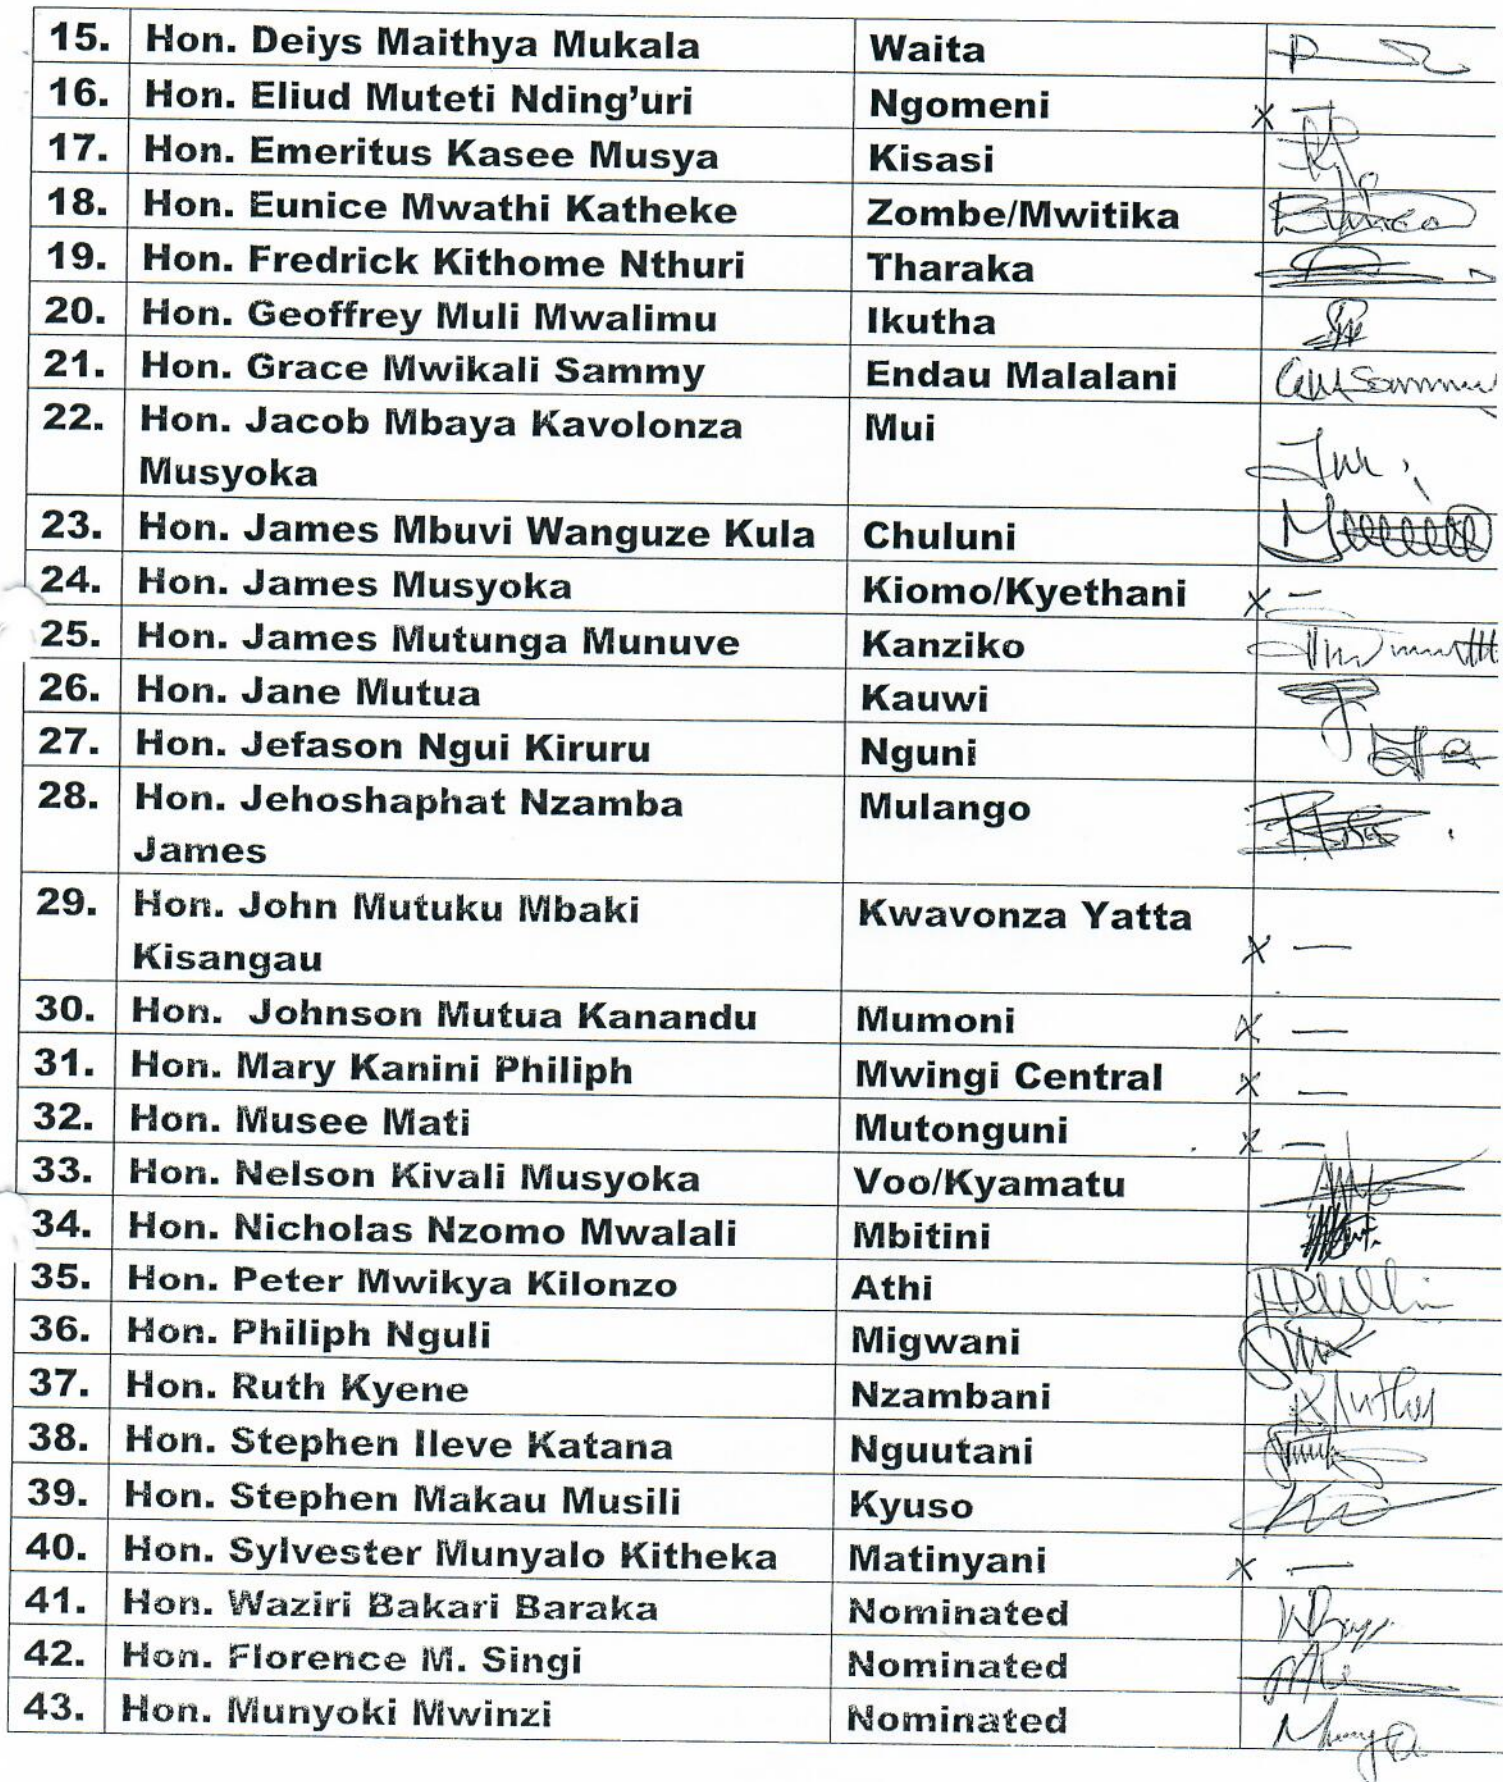 15. Hon. Deiys Maithya Mukala Waita
16. Hon. Eliud Muteti Nding'uri Ngomeni x —
17. Hon. Emeritus Kasee Musya Kisasi
18. Hon. Eunice Mwathi Katheke Zombe/Mwitika
19. Hon. Fredrick Kithome Nthuri Tharaka
20. Hon. Geoffrey Muli Mwalimu Ikutha
21. Hon. Grace Mwikali Sammy Endau Malalani
22. Hon. Jacob Mbaya Kavolonza Mui
Musyoka
23. Hon. James Mbuvi Wanguze Kula Chuluni
24. Hon. James Musyoka Kiomo/Kyethani x —
25. Hon. James Mutunga Munuve Kanziko
26. Hon. Jane Mutua Kauwi
27. Hon. Jefason Ngui Kiruru Nguni
28. Hon. Jehoshaphat Nzamba Mulango
James
29. Hon. John Mutuku Mbaki Kwavonza Yatta
Kisangau x —
30. Hon. Johnson Mutua Kanandu Mumoni x —
31. Hon. Mary Kanini Philiph Mwingi Central x —
32. Hon. Musee Mati Mutonguni x —
33. Hon. Nelson Kivali Musyoka Voo/Kyamatu
34. Hon. Nicholas Nzomo Mwalali Mbitini
35. Hon. Peter Mwikya Kilonzo Athi
36. Hon. Philiph Nguli Migwani
37. Hon. Ruth Kyene Nzambani
38. Hon. Stephen Ileve Katana Nguutani
39. Hon. Stephen Makau Musili Kyuso
40. Hon. Sylvester Munyalo Kitheka Matinyani x —
41. Hon. Waziri Bakari Baraka Nominated
42. Hon. Florence M. Singi Nominated
43. Hon. Munyoki Mwinzi Nominated